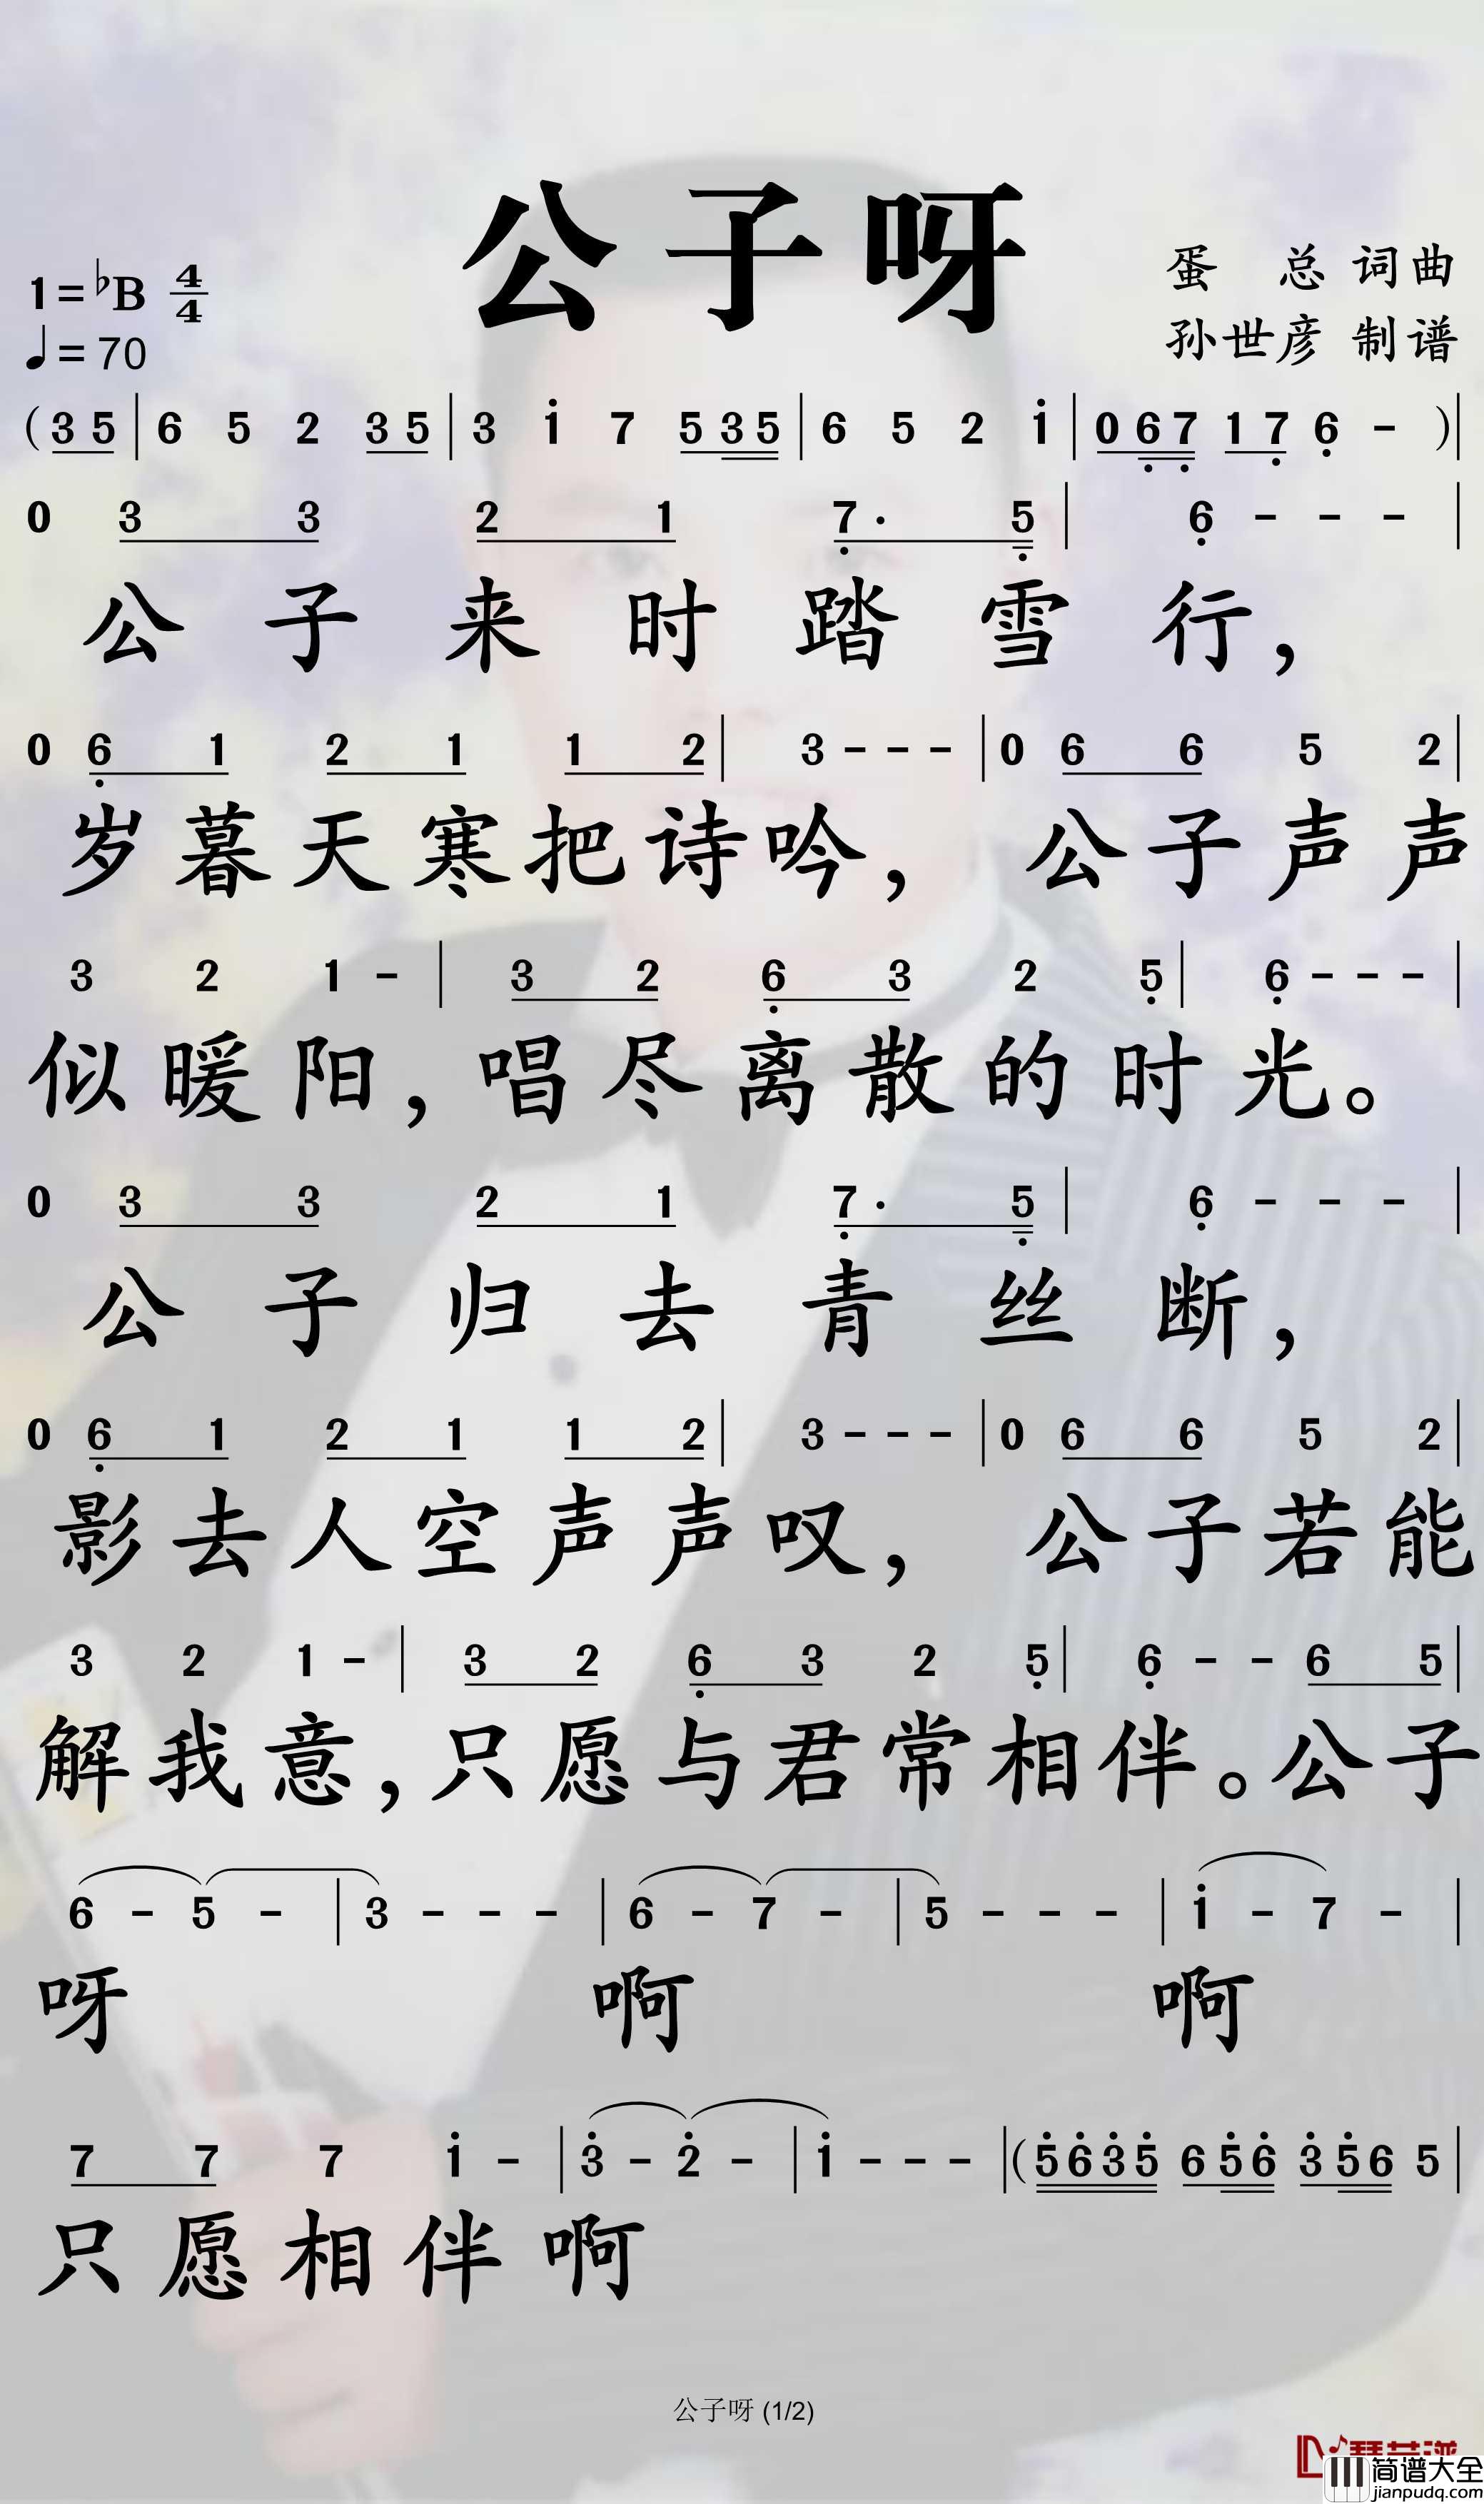 公子呀
1=♭B 4/4
蛋 总 词曲
♩=70
孙世彦 制谱
(3 5 | 6 5 2 3 5 | 3 i 7 5 3 5 | 6 5 2 i | 0 6 7 1 7 6 - )|
0 3 3 2 1 7· 5 | 6 - - - |
公子来时踏雪行，
0 6 1 2 1 1 2 | 3 - - - | 0 6 6 5 2 |
岁暮天寒把诗吟，公子声声
3 2 1 - | 3 2 6 3 2 5 | 6 - - - |
似暖阳，唱尽离散的时光。
0 3 3 2 1 7· 5 | 6 - - - |
公子归去青丝断，
0 6 1 2 1 1 2 | 3 - - - | 0 6 6 5 2 |
影去人空声声叹，公子若能
3 2 1 - | 3 2 6 3 2 5 | 6 - - 6 5 |
解我意，只愿与君常相伴。公子
6 - 5 - | 3 - - - | 6 - 7 - | 5 - - - | i - 7 - |
呀 啊 啊
7 7 7 i - | 3 - 2 - | i - - - | (5 6 3 5 6 5 6 3 5 6 5 |
只愿相伴啊
公子呀 (1/2)
简谱大全
jianpudq.com